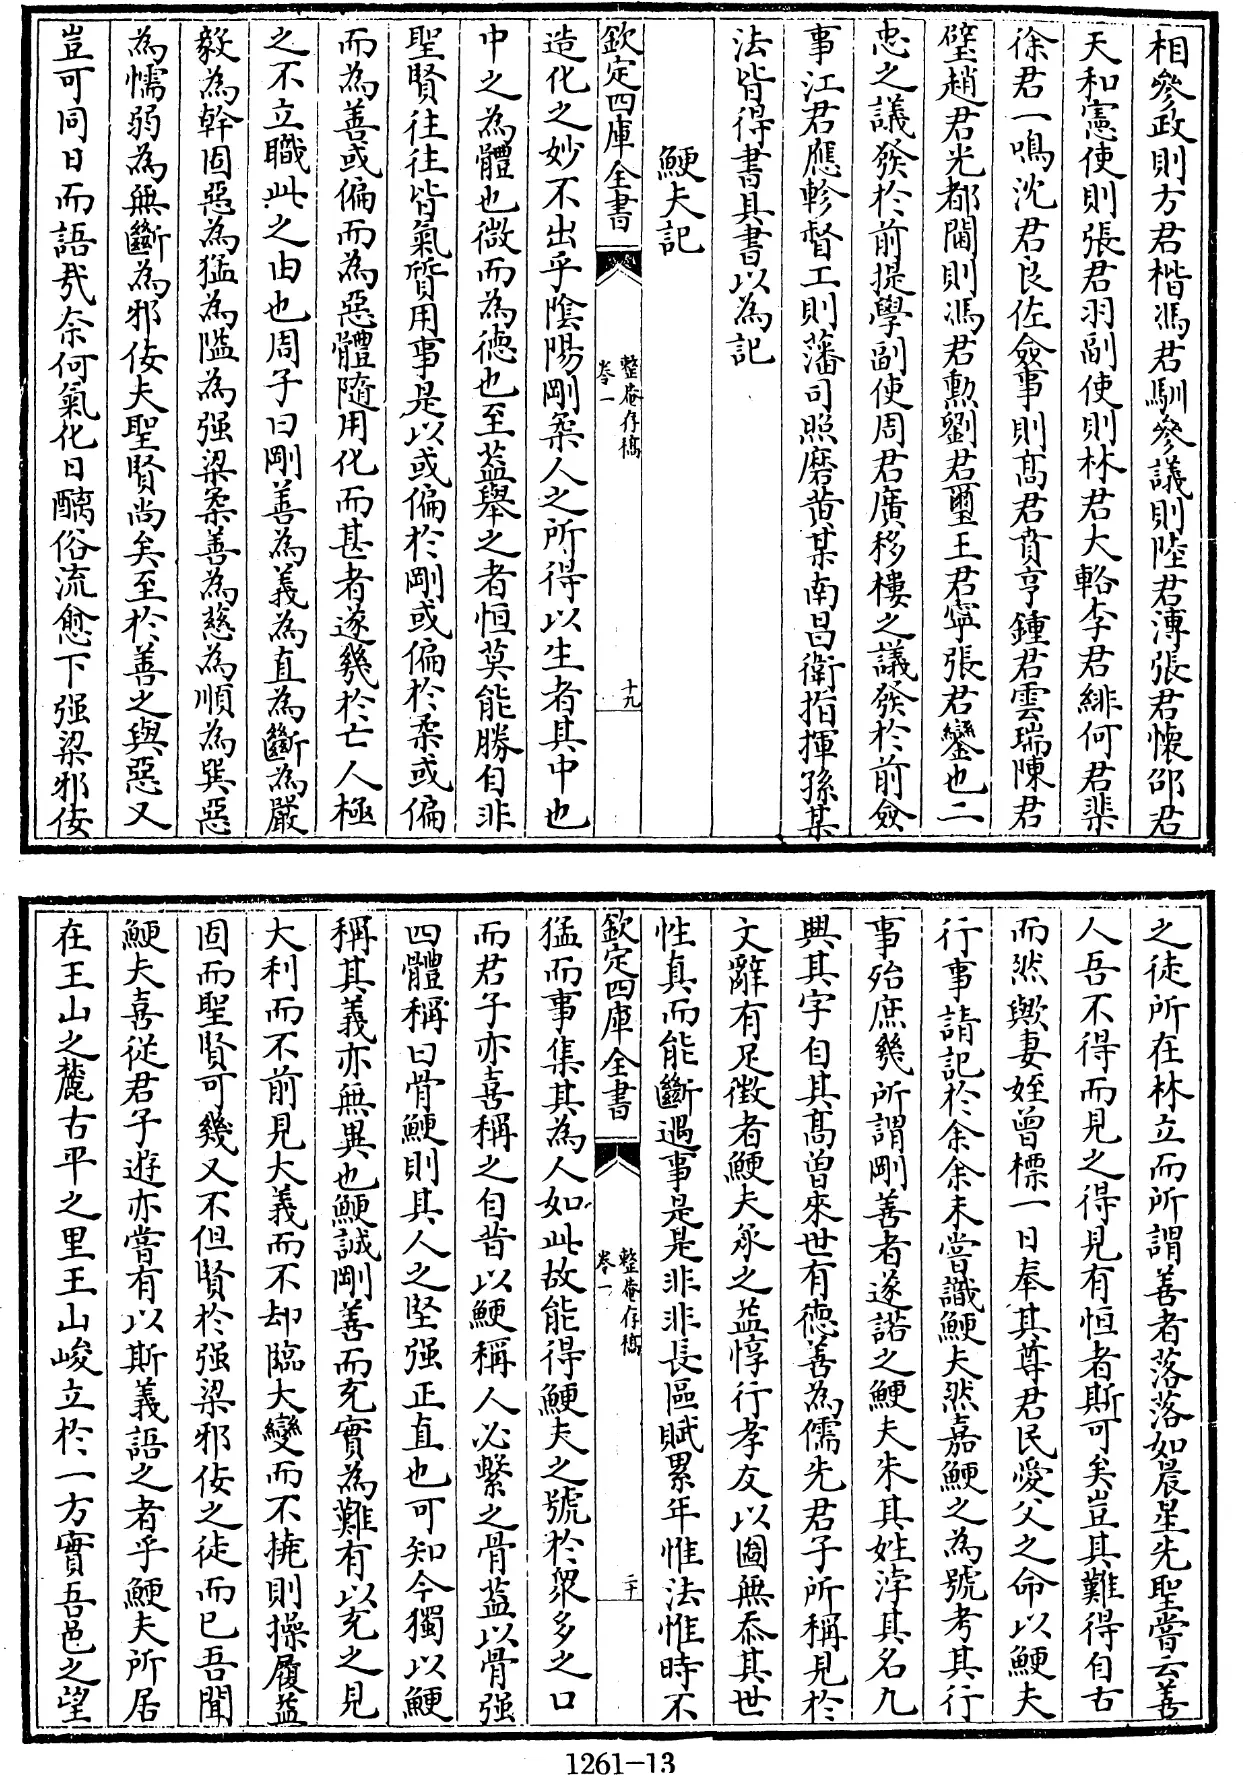 相參政則方君楷馮君馴參議則陸君溥張君懷邵君
天和憲使則張君羽副使則林君大輅李君緋何君棐
徐君一鳴沈君良佐僉事則髙君賁亨鍾君雲瑞陳君
璧趙君光都閫則馮君勲劉君璽王君寧張君鑾也二
忠之議發於前提學副使周君廣移樓之議發於前僉
事江君應軫督工則藩司照磨黄某南昌衛指揮孫某
法皆得書其書以為記
鯁夫記
欽定四庫全書
整庵存稿
卷一
十九
造化之妙不出乎陰陽剛柔人之所得以生者其中也
中之為體也微而為德也至葢舉之者恒莫能勝自非
聖賢往往皆氣質用事是以或偏於剛或偏於柔或偏
而為善或偏而為惡體隨用化而甚者遂幾於亡人極
之不立職此之由也周子曰剛善為義為直為斷為嚴
毅為幹固惡為猛為隘為强梁柔善為慈為順為巽惡
為懦弱為無斷為邪佞夫聖賢尚矣至於善之與惡又
豈可同日而語哉奈何氣化日醨俗流愈下强梁邪佞
之徒所在林立而所謂善者落落如晨星先聖嘗云善
人吾不得而見之得見有恒者斯可矣豈其難得自古
而然歟妻姪曾標一日奉其尊君民愛父之命以鯁夫
行事請記於余余未嘗識鯁夫然嘉鯁之為號考其行
事殆庶幾所謂剛善者遂諾之鯁夫朱其姓浡其名九
興其字自其髙曾來世有德善為儒先君子所稱見於
文辭有足徵者鯁夫承之益惇行孝友以圖無忝其世
性真而能斷遇事是是非非長區賦累年惟法惟時不
欽定四庫全書
整庵存稿
卷一
二十
猛而事集其為人如此故能得鯁夫之號於衆多之口
而君子亦喜稱之自昔以鯁稱人必繫之骨葢以骨强
四體稱曰骨鯁則其人之堅强正直也可知今獨以鯁
稱其義亦無異也鯁誠剛善而充實為難有以充之見
大利而不前見大義而不却臨大變而不撓則操履益
固而聖賢可幾又不但賢於强梁邪佞之徒而已吾聞
鯁夫喜從君子遊亦嘗有以斯義語之者乎鯁夫所居
在王山之麓古平之里王山峻立於一方實吾邑之望
1261-13